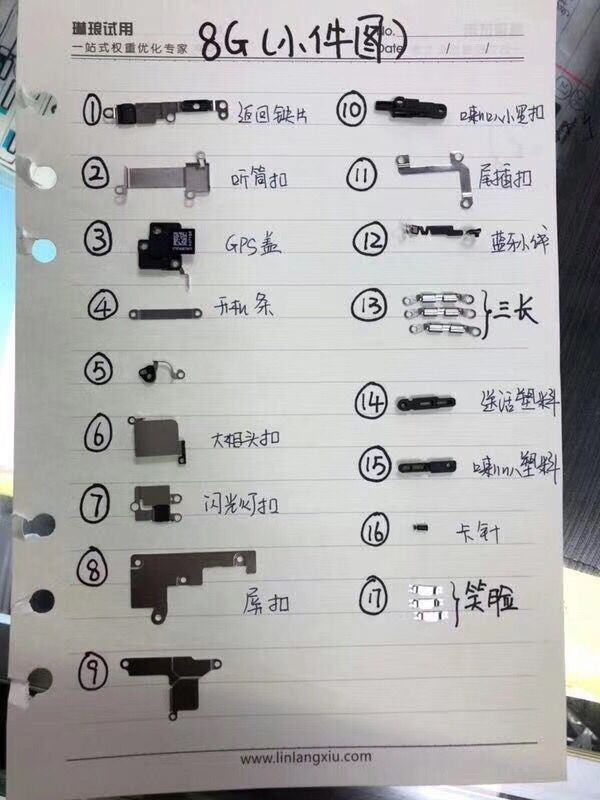 琳琅试用
一站式权重优化专家
No.
Date / /
8G(小件图)
① 返回铁片
② 听筒扣
③ GPS盖
④ 开机条
⑤
⑥ 大相头扣
⑦ 闪光灯扣
⑧ 屏扣
⑨
⑩ 喇叭小黑扣
⑪ 尾插扣
⑫ 蓝牙小
⑬ 三长
⑭ 送话塑料
⑮ 喇叭塑料
⑯ 卡针
⑰ 笑脸
www.linlangxiu.com